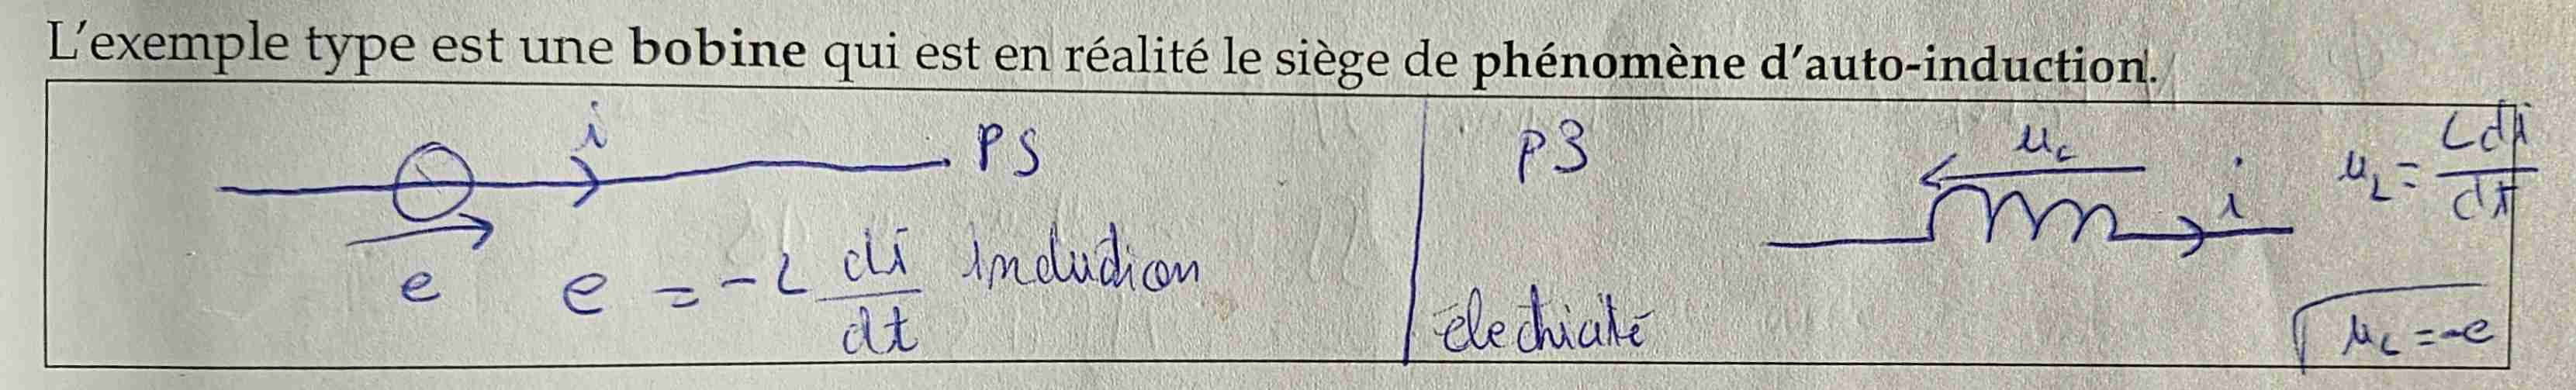 L'exemple type est une bobine qui est en réalité le siège de phénomène d'auto-induction.
i
PS
e
e = -L di/dt induction
P3
u_L
i
u_L = L di/dt
électricité
u_L = -e